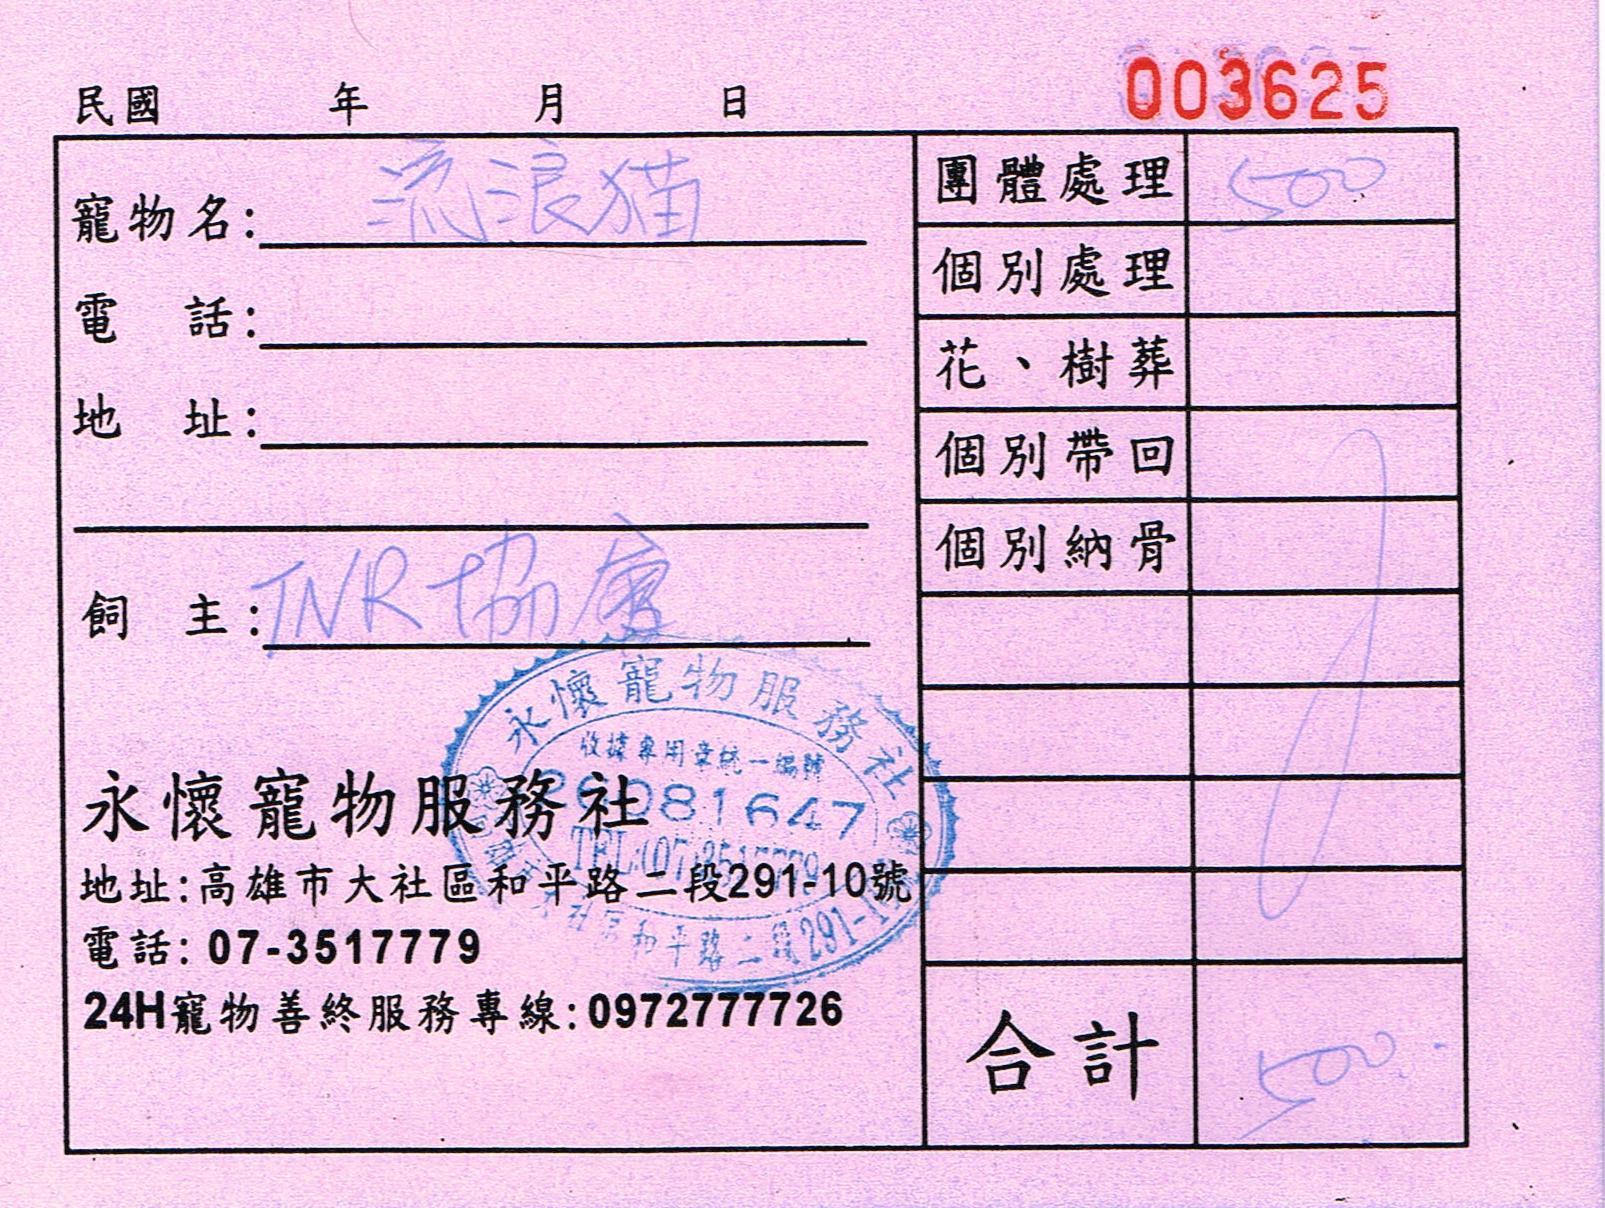 003625
民國 年 月 日
寵物名: 流浪猫
電 話:
地 址:
飼 主: TNR協會
團體處理 500
個別處理
花、樹葬
個別帶回
個別納骨
合計 500.
永懷寵物服務社
收據專用章統一編號
081647
TEL:(07)3517779
大社區和平路二段291-10
永懷寵物服務社
地址:高雄市大社區和平路二段291-10號
電話: 07-3517779
24H寵物善終服務專線:0972777726